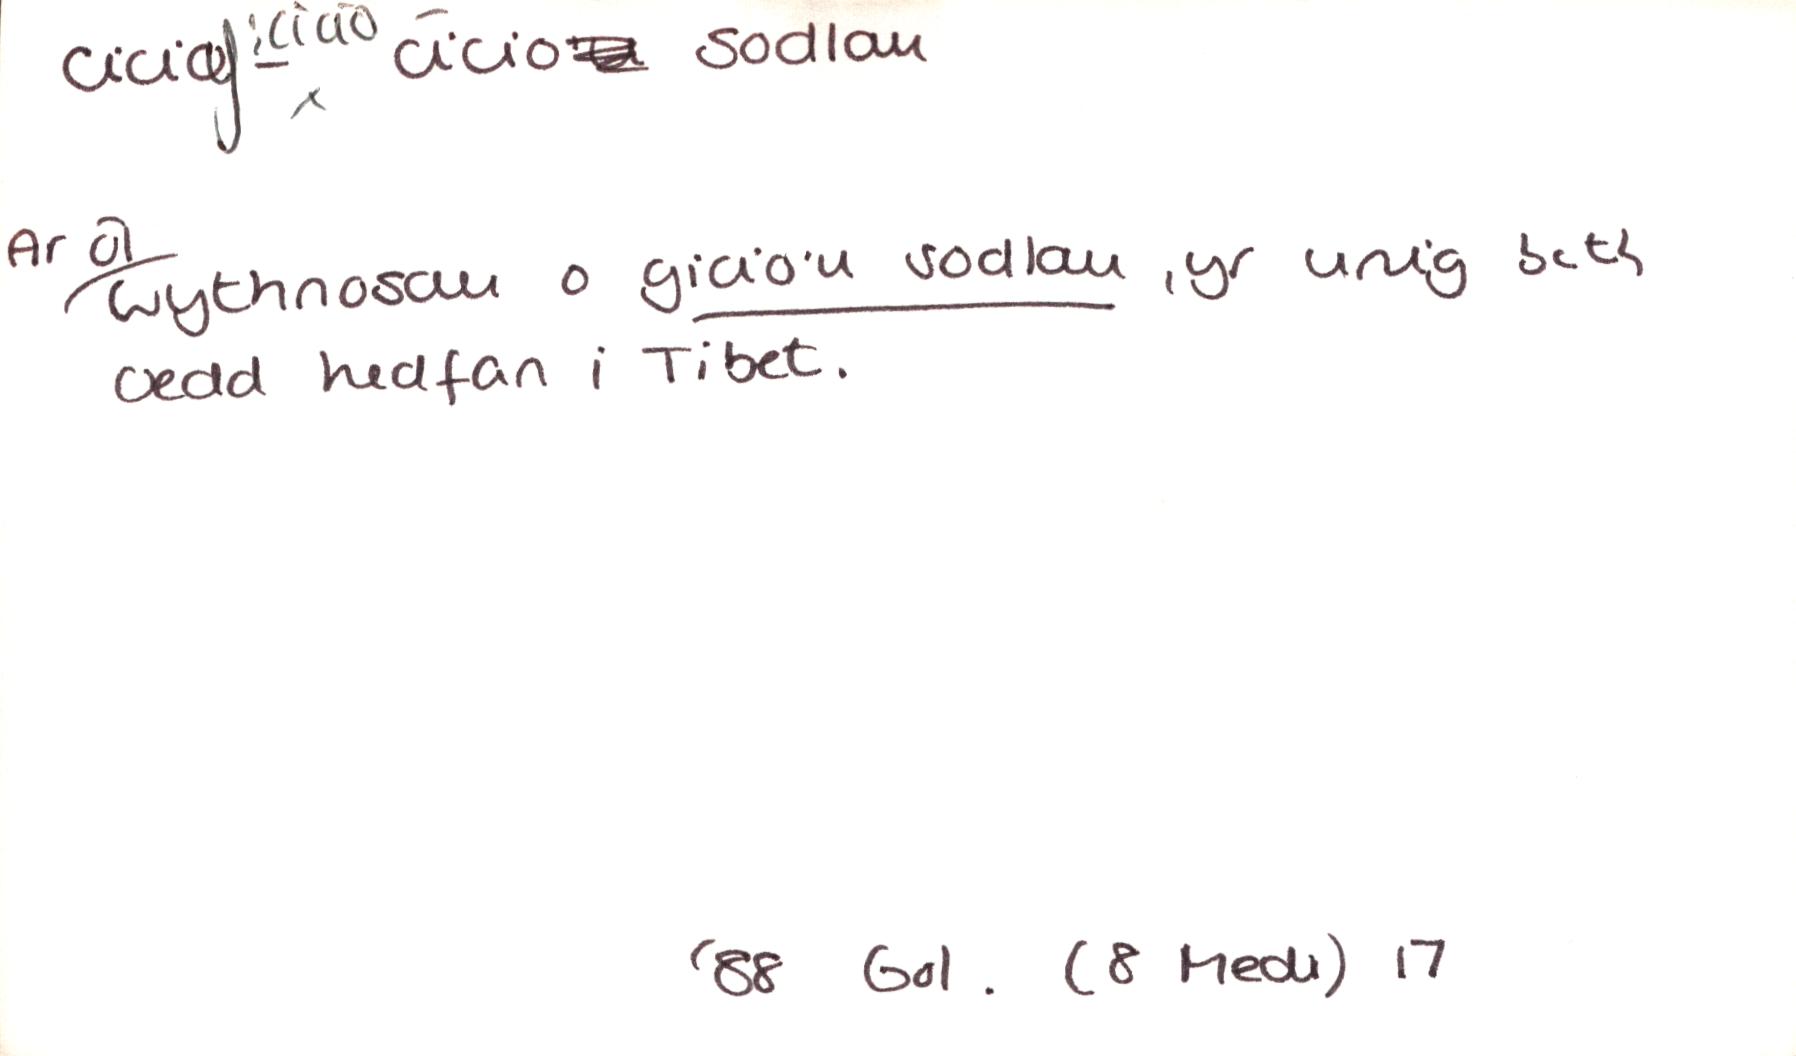 ciciaf: ciao cicio sodlau
x
Ar ôl
wythnosau o gicio'u sodlau, yr unig beth
oedd hedfan i Tibet.
'88 Gol. (8 Medi) 17